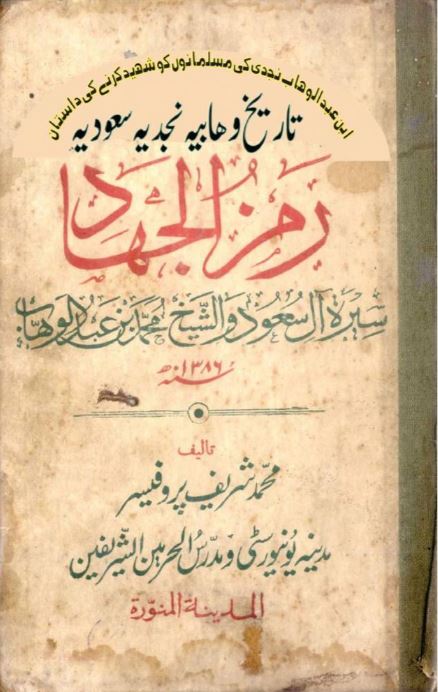 ابن عبدالوهاب نجدی کی مسلمانوں کو شهید کرنے کی داستان
تاریخ وهابیه نجدیه سعودیه
رمز الجهاد
سيرة آل سعود والشيخ محمد بن عبدالوهاب
سنه ۱۳۸۶ھ
تالیف
محمد شریف پروفیسر
مدینه یونیورسٹی و مدرس الحرمین الشریفین
المدينة المنورة